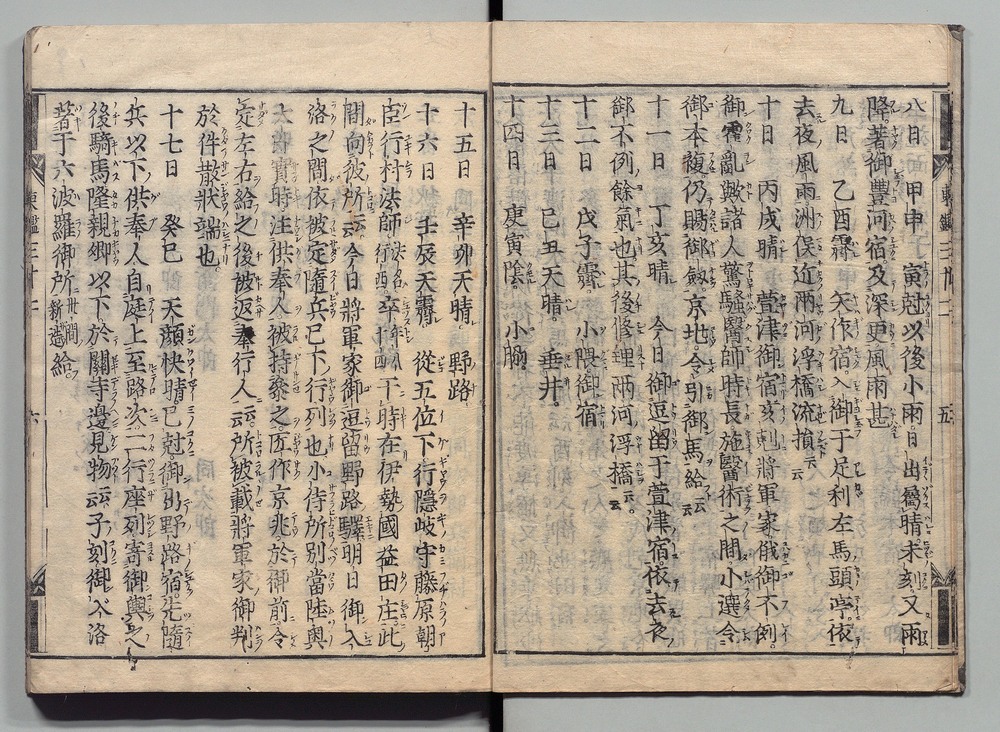 八日 甲申 寅尅以後小雨日出屬晴未刻又雨
降著御豐河宿及深更風雨甚
九日 乙酉霽 矢作宿入御于足利左馬頭亭依
去夜風雨洲俣近兩河浮橋流損云云
十日 丙戌晴 萱津御宿亥刻將軍家俄御不例
御霍亂歟諸人驚騷醫師時長施醫術之間小選令
御本複仍賜御劔京地令引御馬給云云
十一日 丁亥晴 今日御逗留于萱津宿依去夜
御不例餘氣也其後修理兩河浮橋云云
十二日 戊子霽 小隈御宿
十三日 己丑天晴 垂井
十四日 庚寅陰 小脇
東鑑三十二 五
十五日 辛卯天晴 野路
十六日 壬辰天霽 從五位下行隱岐守藤原朝
臣行村法師法名行西卒年八十四于時在伊勢國益田庄此
間向彼所云云今日將軍家御逗留野路驛明日御入
洛之間依被定隨兵已下行列也小侍所別當陸奧
太郎實時注供奉人被持參之匠作京兆於御前令
定左右給之後被返奉行人云云所被載將軍家御判
於件散狀端也
十七日 癸巳 天顏快晴巳尅御出野路宿先隨
兵以下供奉人自庭上至路次二行座列寄御輿之
後騎馬隆親卿以下於關寺邊見物云云子刻御入洛
著于六波羅御所新造給
東鑑三十二 六